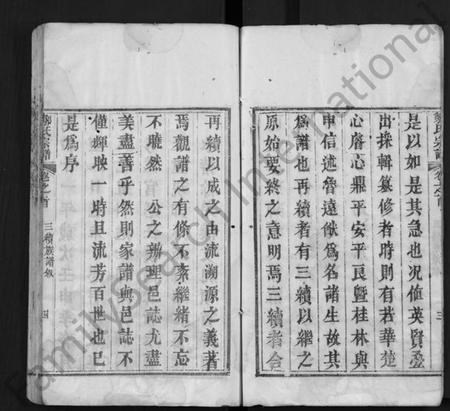 是以如是其急也況值英賢盈
出採輯纂修者時則有莪華楚
心睿心鼎平安平良暨桂林與
申信述魯遠猷為名諸生故其
為譜也再續者有三續以繼之
原始要終之意明焉三續者合
三
再續以成之由流溯源之義著
焉觀譜之有條不紊繼緒不忘
不曉然 公之辦理邑誌尤盡
美盡善乎然則家譜與邑誌不
僅輝映一時且流芳百世也已
是為序
氏宗譜 卷之首 三續族譜叙 四
FamilySearch International